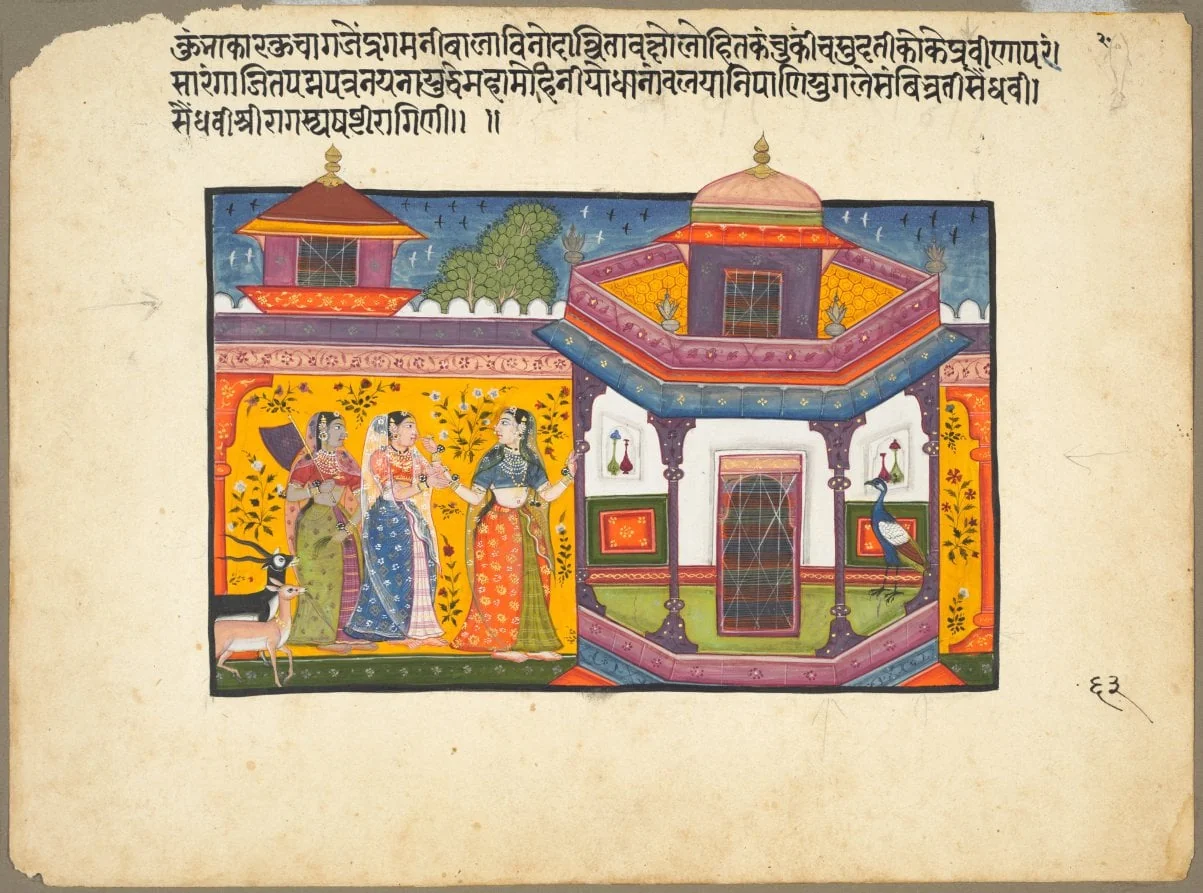 कुंभाकारकुचा गजेंद्रगमनी बाला विनोदाश्चिता वक्षो लोहितकंचुकी च सुदती कोके प्रवीणा परं।
सारंगाजितपद्मपत्रनयना युद्धे महामोहिनी योधानां वलयानि पाणियुगले संबिभ्रती सैंधवी।
सैंधवी श्रीरागस्य षष्ठी रागिणी।। ।।
६३